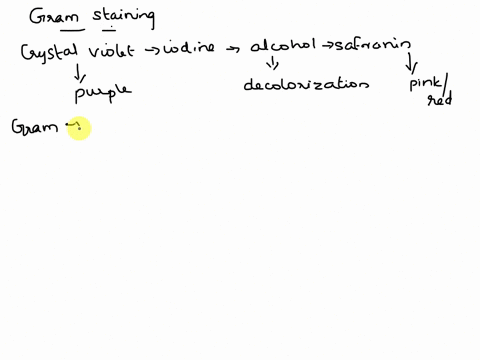 Gram staining
Crystal violet → iodine → alcohol → safranin
purple decolorization pink/
red
Gram -